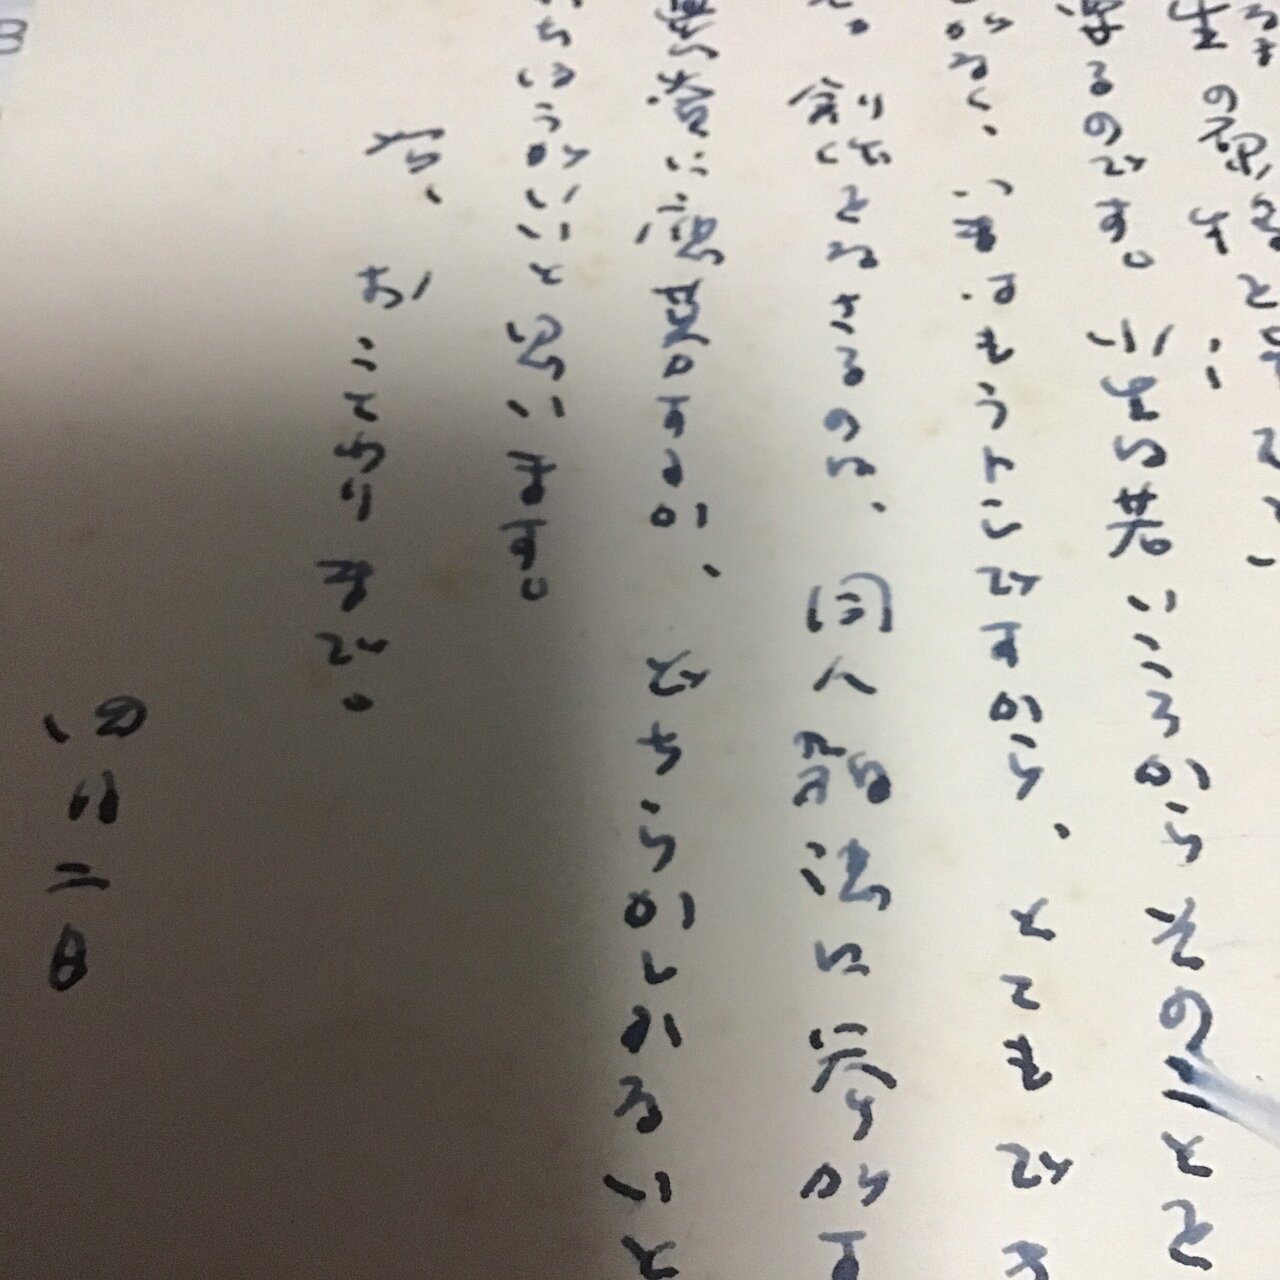 生の
るのです。小生は若いころからそのことを
がなく、いまはもうトシですから、とてもでき
創作となさるのは、同人雑誌に参加す
懸賞に応募するか、どちらかしかないと
ほうがいいと思います。
右、おことわりまで。
四月二日